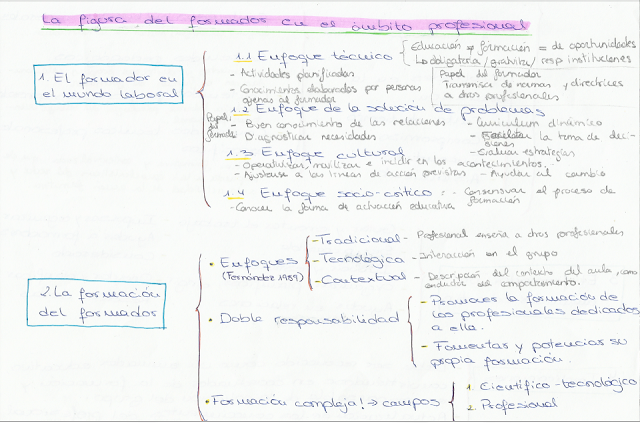 La figura del formador en el ámbito profesional
1. El formador en el mundo laboral
1.1 Enfoque técnico
Educación ≠ formación = de oportunidades
↳ obligatoria/gratuita/resp instituciones
- Actividades planificadas
- Conocimientos elaborados por personas ajenas al formador
Papel del formador
Transmisor de normas y directrices a otros profesionales
1.2 Enfoque de la solución de problemas
Papel del formador
- Buen conocimiento de las relaciones
- Diagnosticar necesidades
- Curriculum dinámico
- Facilitar la toma de decisiones
- Evaluar estrategias
1.3 Enfoque cultural
- Operativizar, movilizar e incidir en los acontecimientos.
- Ajustarse a las líneas de acción previstas
- Ayudar al cambio
1.4 Enfoque socio-crítico
- Consensuar el proceso de formación
- Conocer la forma de actuación educativa
2. La formación del formador
• Enfoques (Fernández 1989)
- Tradicional - Profesional enseña a otros profesionales
- Tecnológica - Interacción en el grupo
- Contextual - Descripción del contexto del aula, como el comportamiento.
• Doble responsabilidad
- Promover la formación de los profesionales dedicados a ella.
- Fomentar y potenciar su propia formación.
• Formación compleja! → campos
1. Científico-tecnológico
2. Profesional